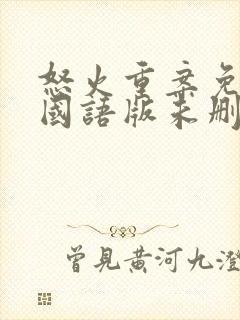 怒火重案免
國語版未删
曾見黃河九澄